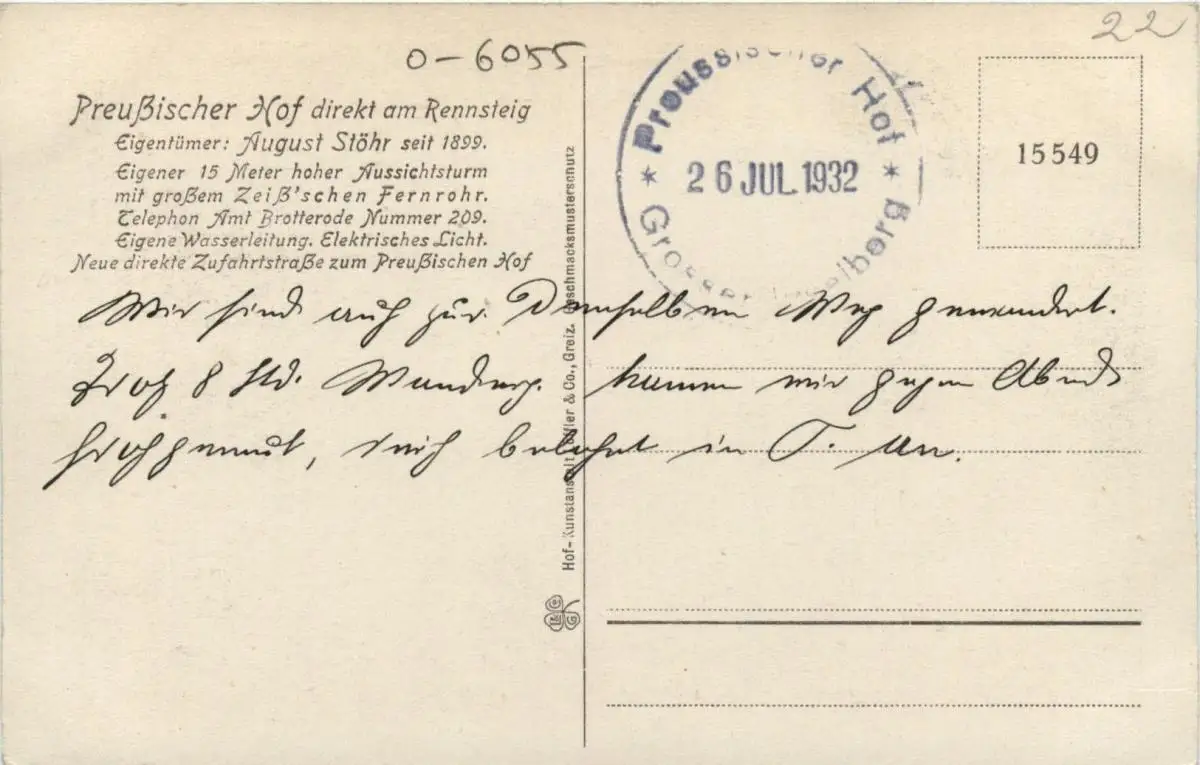 22
0-6055
Preußischer Hof direkt am Rennsteig
Eigentümer: August Stöhr seit 1899.
Eigener 15 Meter hoher Aussichtsturm
mit großem Zeiß'schen Fernrohr.
Telephon Amt Brotterode Nummer 209.
Eigene Wasserleitung. Elektrisches Licht.
Neue direkte Zufahrtstraße zum Preußischen Hof
Preussischer Hof
26 JUL. 1932
Grosser
15549
Wir sind auch denselben Weg gewandert.
Trotz 8 Std. kamen wir gegen Abend
frohgemut, in T. an.
Hof-Kunstanstalt & Co., Greiz. Geschmacksmusterschutz